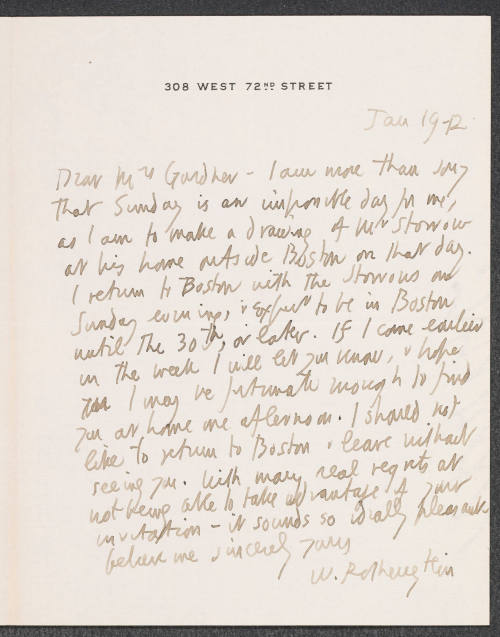 308 WEST 72ND STREET
Jan 19-12
Dear Mrs Gardner - I am more than sorry
that Sunday is an impossible day for me,
as I am to make a drawing of Mr Storrow
at his home outside Boston on that day.
I return to Boston with the Storrows on
Sunday evening, & expect to be in Boston
until the 30th, or later. If I come earlier
in the week I will let you know, & hope
I may be fortunate enough to find
you at home one afternoon. I should not
like to return to Boston & leave without
seeing you. With many real regrets at
not being able to take advantage of your
invitation - it sounds so ideally pleasant
believe me sincerely yours
W. Rothenstein